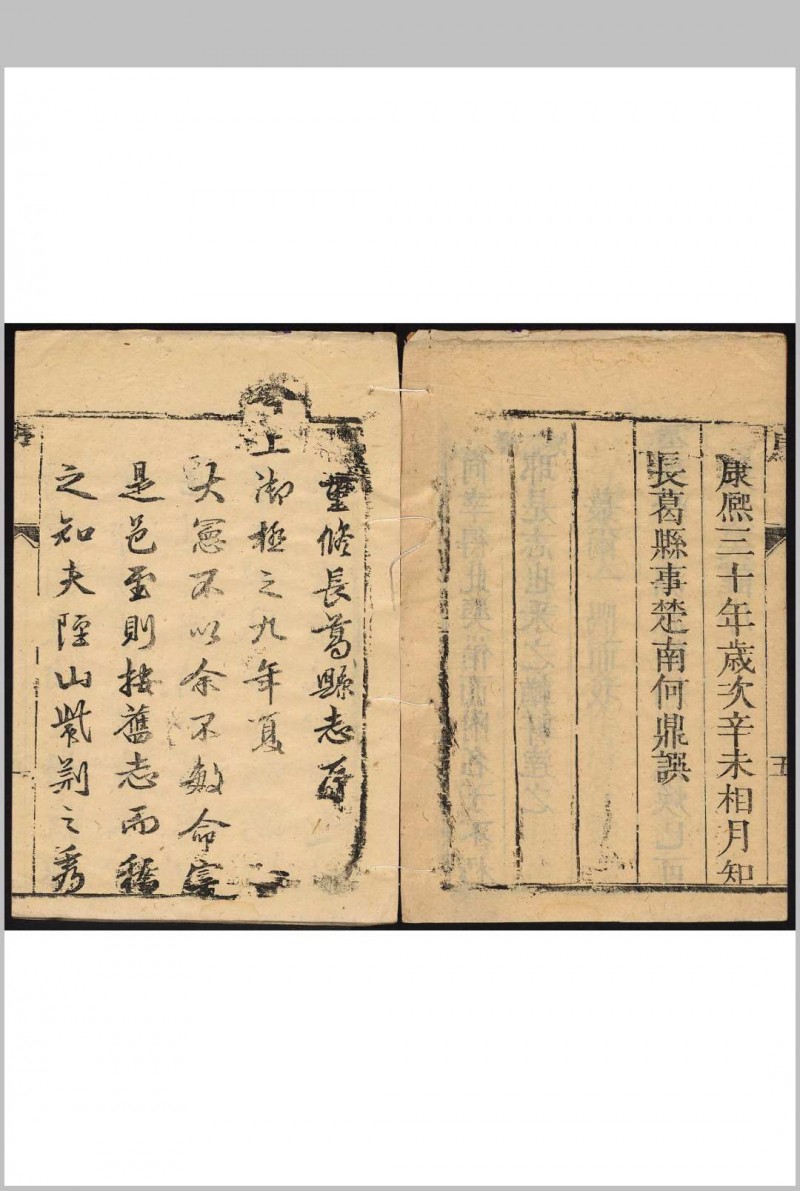 康熙三十年歲次辛未相月知
長葛縣事楚南何鼎譔
五
重修長葛縣志序
今
上御極之九年夏
大憲不以余不敏命宰
是邑至則按舊志而稽
之知夫陘山紫荊之秀